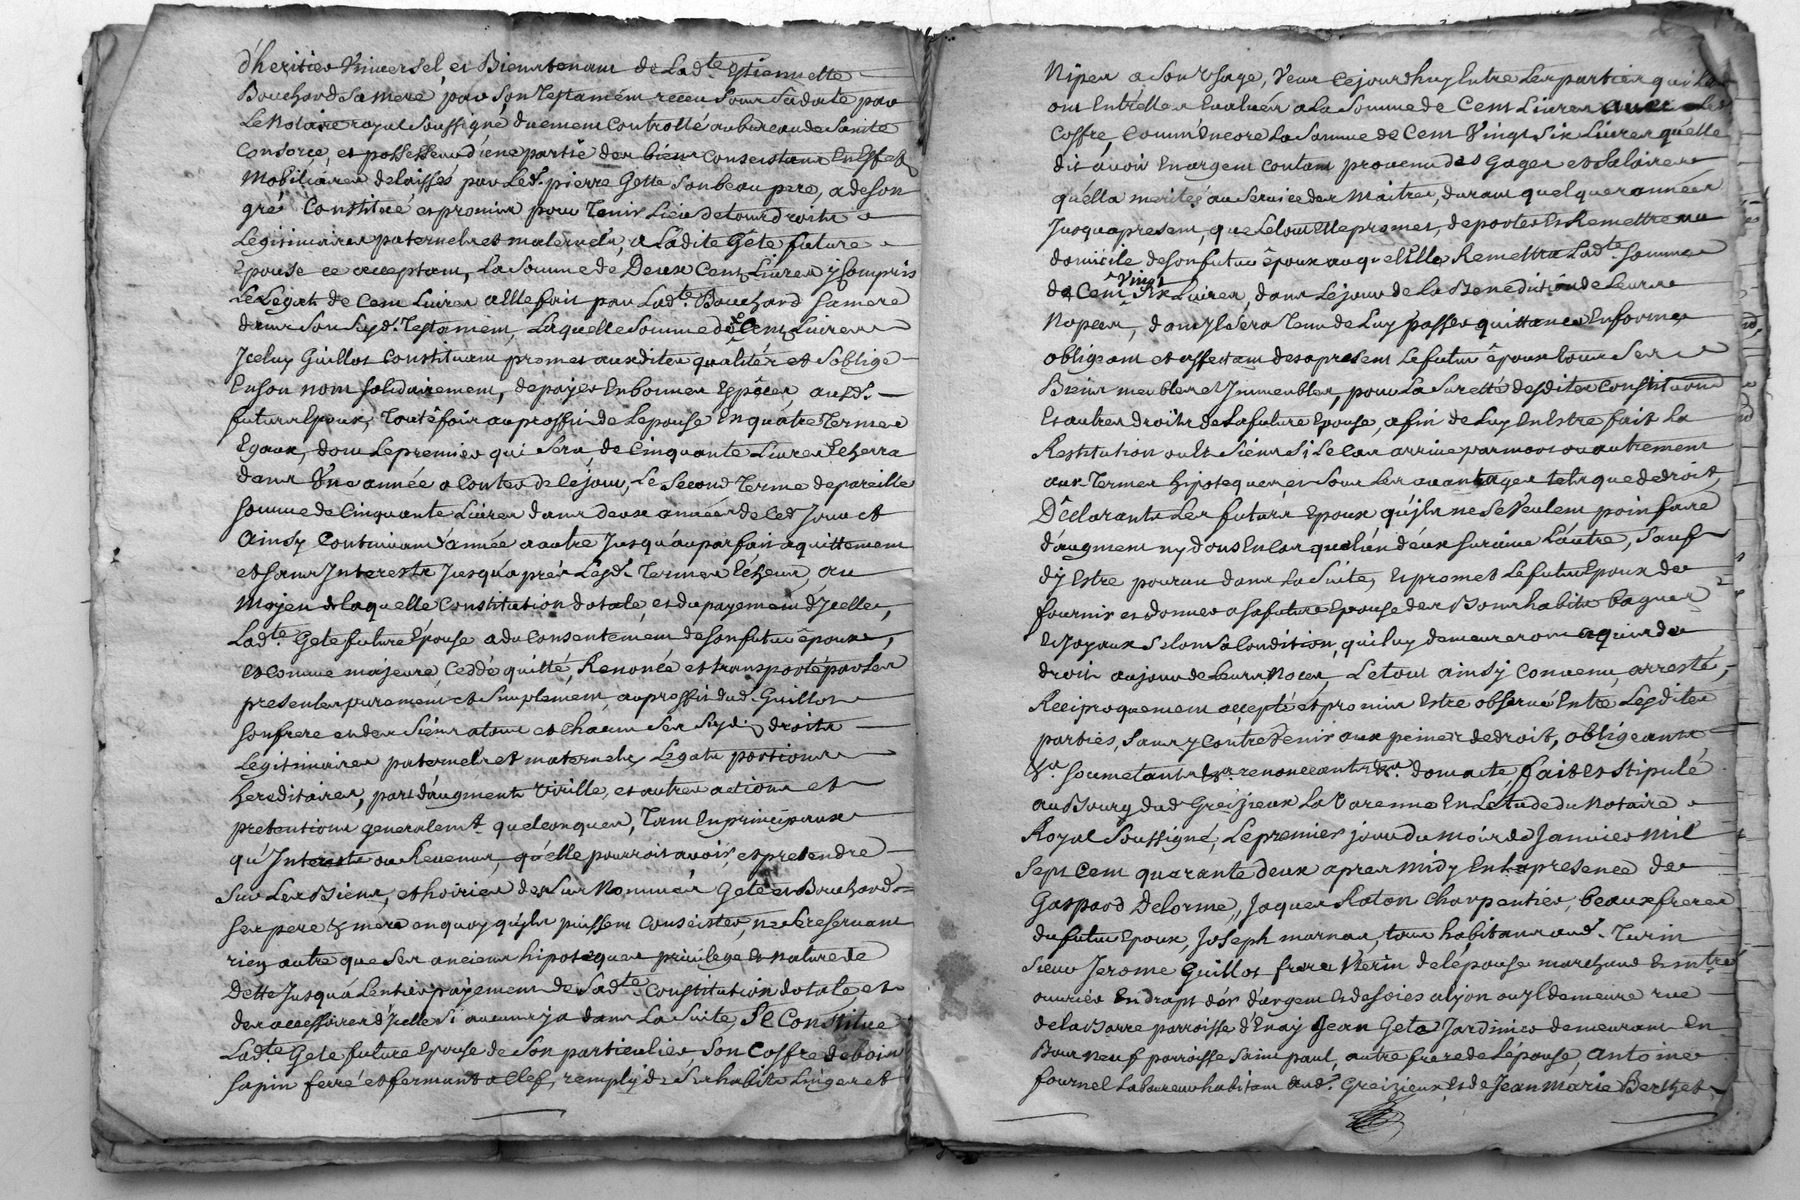 d'heritier Universel, et Bientenant de Lad.te Estiennette
Bouchard Sa mere, par Son Testament receu Sous Sa date par
Le Notaire royal Soussigné duement Controllé au bureau de Sainte
Consorce, et possesseur d'une partie des biens Consistans En Effets
Mobiliaires delaissés par Led.t pierre Gette Son beau pere, a de Son
gré Constitué et promis pour Tenir Lieu de tous droits
Legitimaires paternels et maternels, a Ladite Gete future
Epouse ce acceptant, La Somme de Deux Cent Livres y Compris
Le Legat de Cent Livres a Elle fait par Lad.te Bouchard Sa mere
dans Son Susd.t Testament, Laquelle Somme de 2 Cent Livres
Jceluy Guillot Constituant promet ausdites qualités et S'oblige
En Son nom Solidairement, de payer En bonnes Espêces aud.s
futurs Epoux, Toutefois au proffit de Lepouse En quatre Termes
Egaux, dont Le premier qui Sera de Cinquante Livres Echerra
dans Une année a Conter de Ce jour, Le Second Terme de pareille
Somme de Cinquante Livres dans deux années de Ced. Jour et
Ainsy Continuant d'année a autre Jusqu'au parfait aquittement
et Sans Interests Jusqu'apres Lesd.s Termes Echeus, au
Moyen de laquelle Constitution dotale, et du payement d'Jcelle,
Lad.te Gete future Epouse a du Consentement de Son futur êpoux,
et Comme majeure, Ceddé quitté, Renoncé et transporté par Les
presentes purement et Simplement, au proffit dud. Guillot
Son frere et des Siens a tous et Chacuns Ses Susd.s droits
Legitimaires paternels et maternels, Legats portions
Hereditaires, part d'augment Virille, et autres actions et
pretentions generalem.t quelconques, Tant En principaux
qu'Interests ou Revenus, qu'elle pourroit avoir, et pretendre
Sur Les Biens, et hoiries des Sus Nommés Gete et Bouchard
Ses pere & mere en quoy qu'ils puissent Consister, ne Se reservant
rien autre que Ses anciens hipoteques privilege et Nature de
Dette Jusqu'a Lentier payement de Lad.te Constitution dotale, et
des accessoires d'Jcelle Si aucuns y a dans La Suite, Se Constitue
Lad.te Gete future Epouse de Son particulier, Son Coffre de bois
Sapin ferré et fermant a Clef, remply de Ses habits Linges et
Nipes a Son Usage, Veus Cejourdhuy Entre Les parties qui Les
ont Entr'elles Evalués a La Somme de Cent Livres avec Led.
Coffre, Comm'Encore La Somme de Cent Vingt Six Livres qu'elle
dit avoir En argent Contant provenu des Gages et Salaires
qu'ella merités au Service des Maitres, durant quelques années
Jusqu'apresent, que Letout Elle promet, de porter Et Remettre au
domicile de Son futur êpoux auquel Elle Remettra Lad.te Somme
de Cent Vingt Six Livres, dans Le jour de La Benediction de Leurs
Nopces, dont Jl Sera Tenu de Luy passer quittance En forme
obligeant et affectant des apresent Le futur êpoux tous Ses
Biens meubles et Jmmeubles, pour La Suretté desdites Constitutions
Et autres droits de La future Epouse, afin de Luy En Estre fait la
Restitution ou Es Siens Si Le Cas arrive par mort ou autrement
aux Termes hipoteques et Sous Les avantages tels que de droit,
Declarants Les futurs Epoux qu'jls ne Se Veulent poin faire
d'augment ny dons En Cas que L'un d'eux Survive L'autre, Sauf
d'y Estre pourvu dans La Suite, Et promet Le futur Epoux de
fournir et donner a Sa future Epouse des Bons habits bagues
Et Joyaux Selon Sa Condition, qui luy demeureront aquis de
droit au jour de Leurs Noces, Le tout ainsy Convenu, arresté,
Reciproquement accepté et promis Estre observé Entre Lesdites
parties, Sans y Contrevenir aux peines de droit, obligeants
&.a Soumetants &.a renonceants &.a dont acte, fait Et Stipulé
au Bourg dud. Greizieux La Varenne En Letude du Notaire
Royal Soussigné, Le premier jour du mois de Janvier mil
Sept Cent quarante deux apres midy En La presence de
Gaspard Delorme, Jaques Raton Charpentier, beaux freres
du futur Epoux, Joseph marnas, tous habitans aud. Turin
Sieur Jerome Guillot frere Uterin de L'epouse marchand Et m.tre
ouvrier En draps d'or d'argent et de Soies a Lyon ou Jl demeure rue
de La Barre parroisse d'Enay Jean Gete Jardinier demeurant En
Bourneuf parroisse Saint paul, autre frere de L'épouse, Antoine
fournel Laboureur habitant aud.t Greizieux, et de Jean Marie Berthet